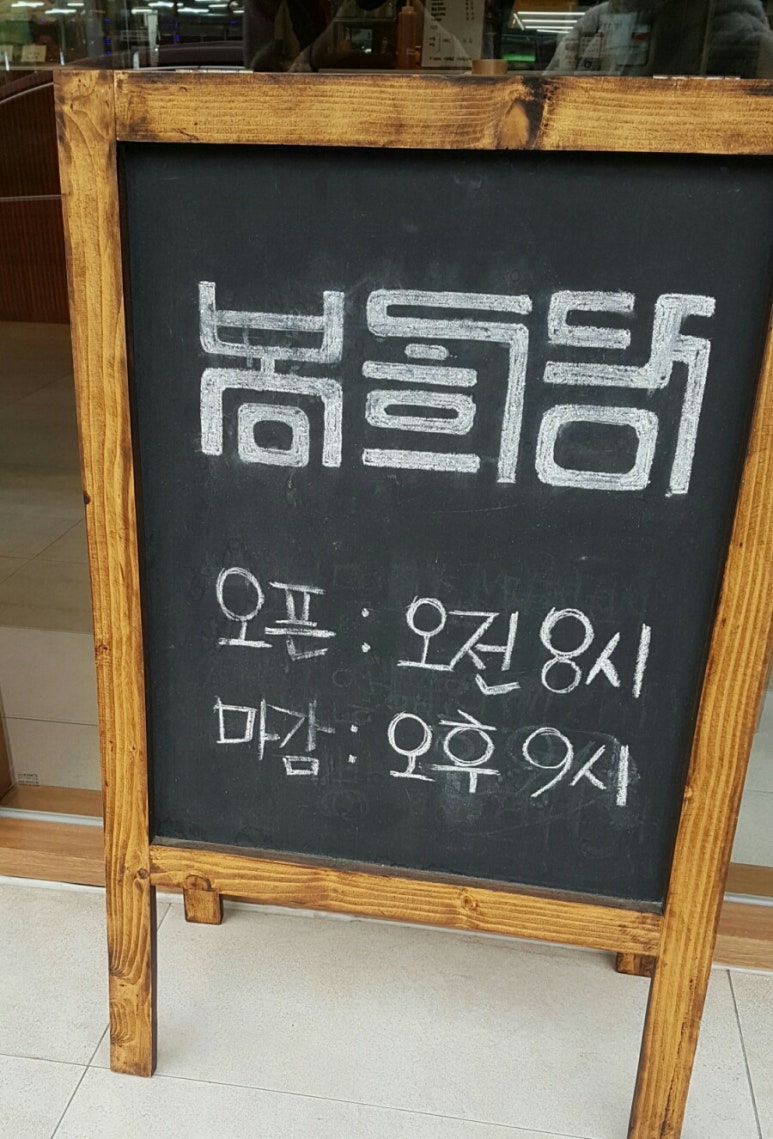 봉희당
오픈 : 오전 8시
마감 : 오후 9시